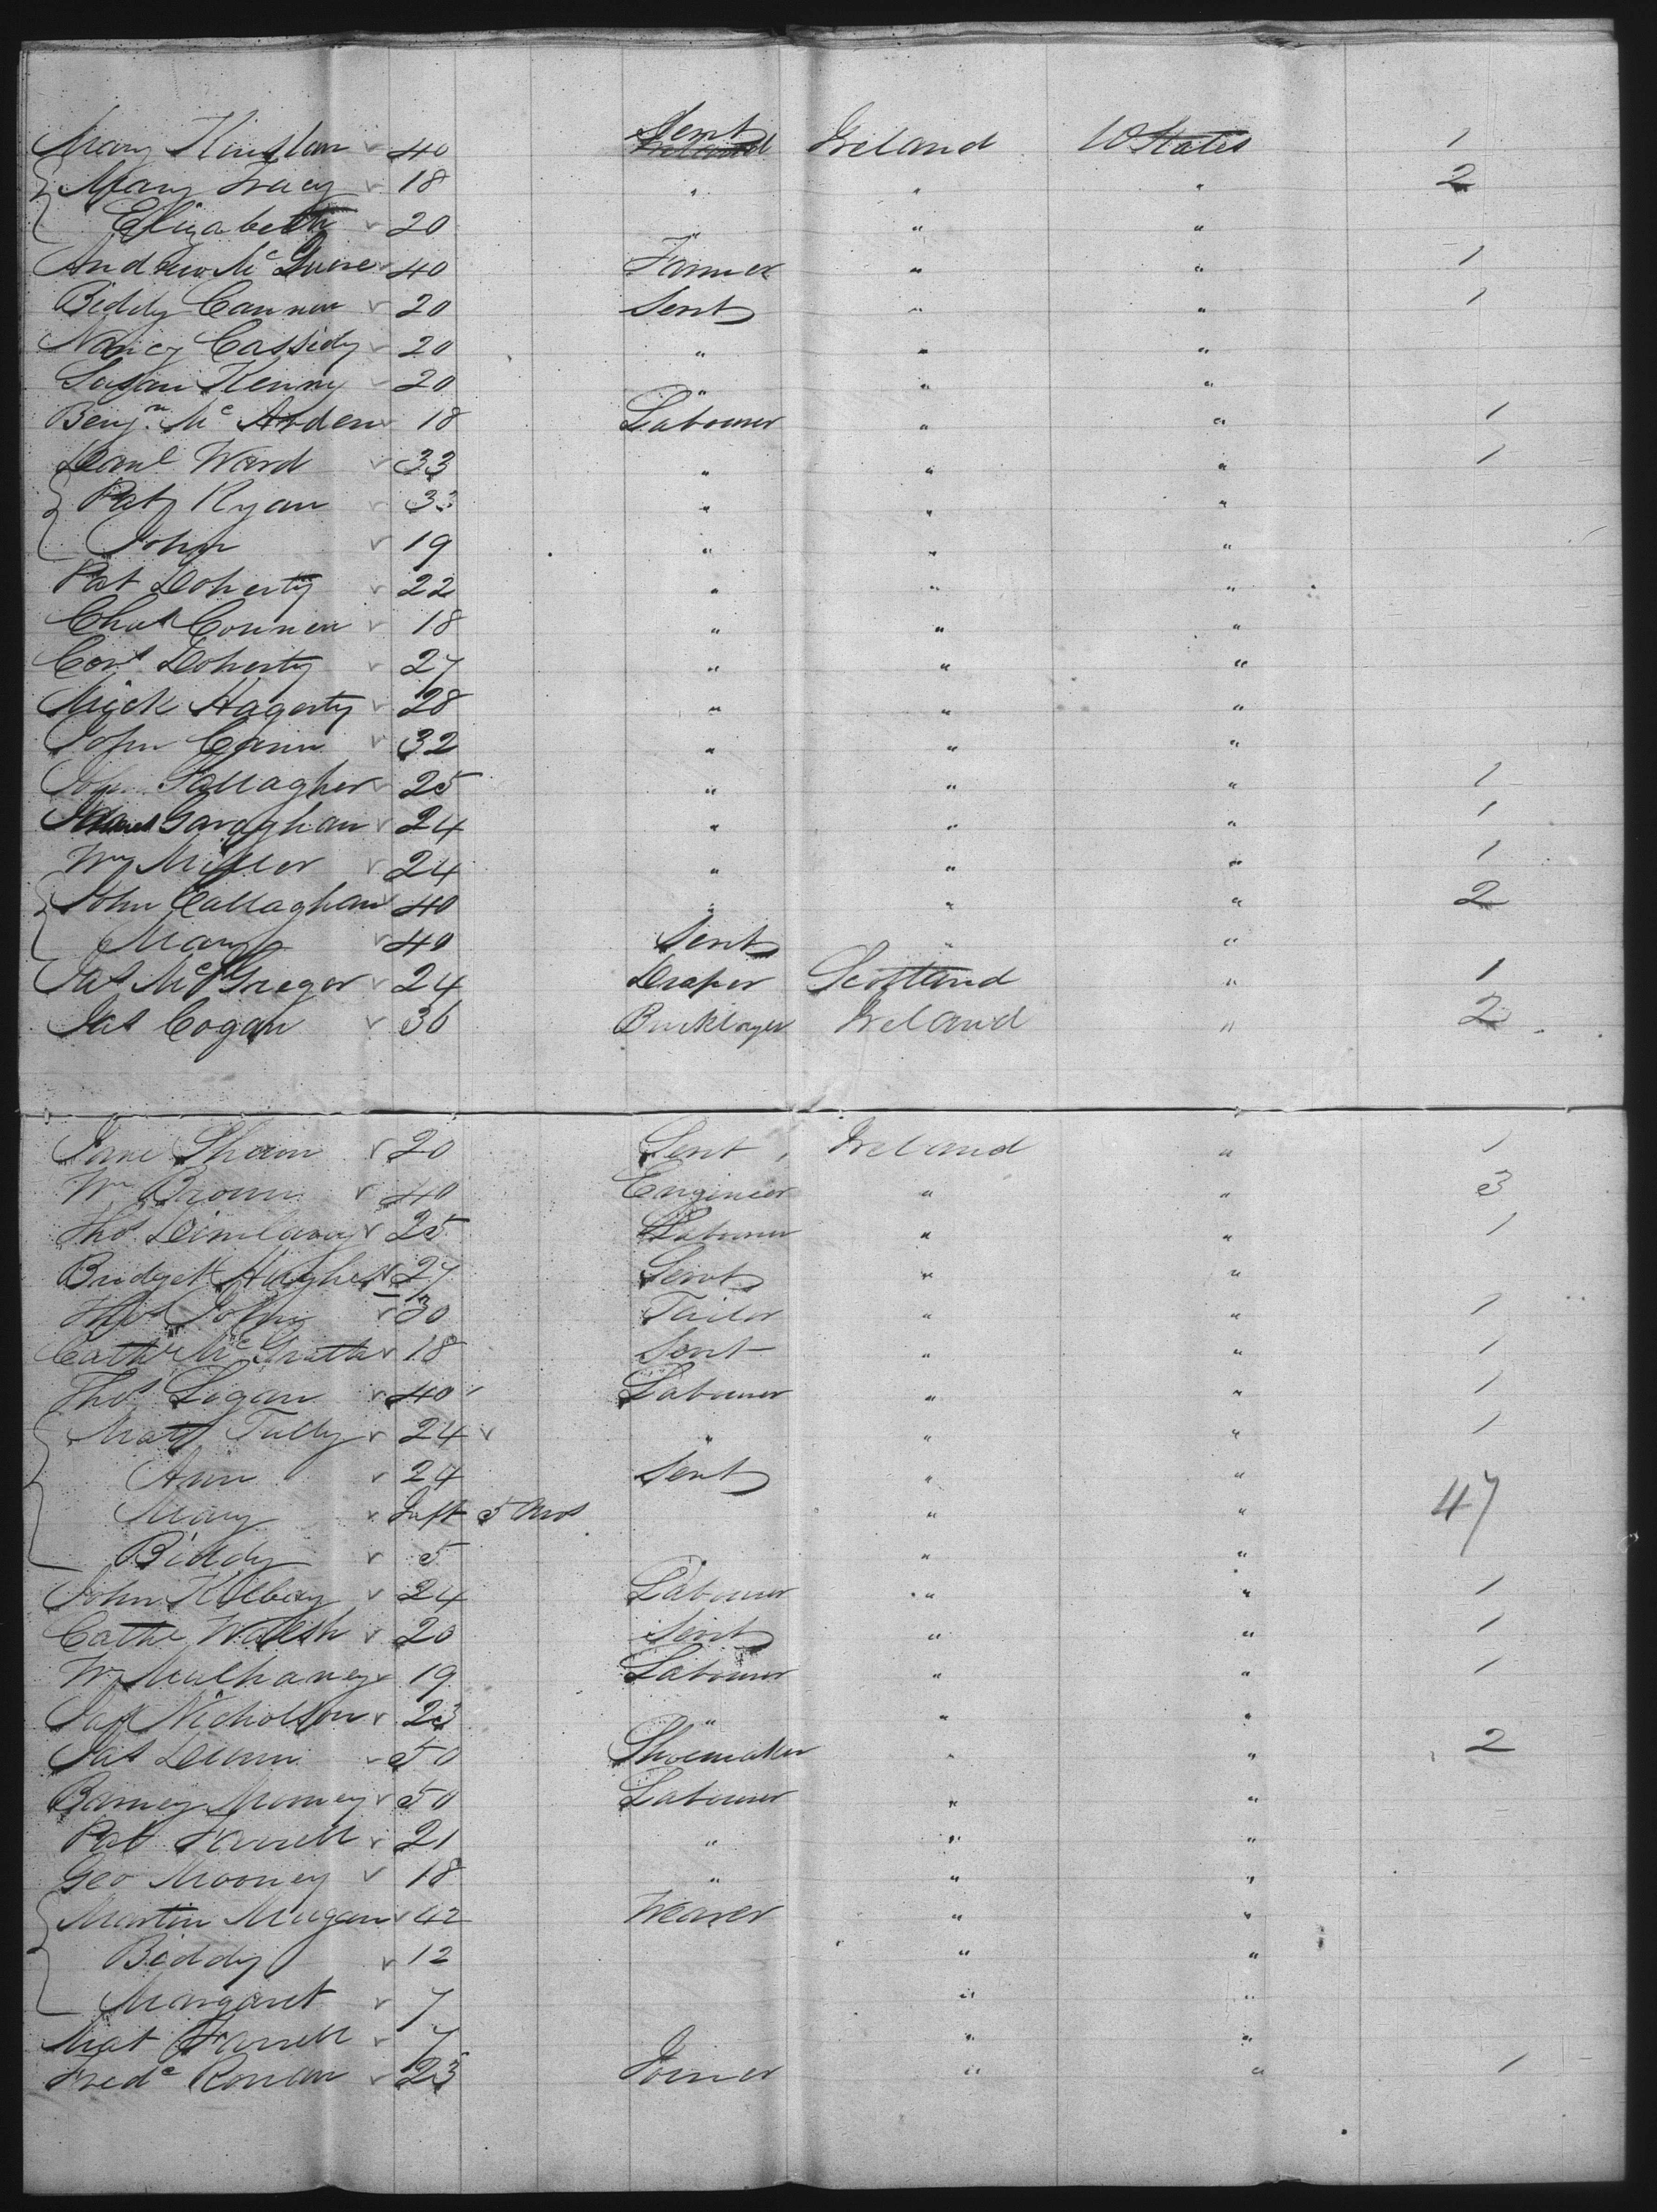 Mary Kinslan 40 Servt Ireland UStates 1
Mary Tracy 18 " " " 2
Elizabeth 20 " " "
Andrew Mc 40 Farmer " " 1
Biddy Cannon 20 Servt " " 1
Nancy Cassidy 20 " " "
Susan Kenny 20 " " "
Benjn. Mc Arden 18 Labourer " " 1
Danl Ward 33 " " " 1
Pat Ryan 33 " " "
John 19 " " "
Pat Doherty 22 " " "
Chas Connen 18 " " "
Cors Doherty 27 " " "
Mick Hagerty 28 " " "
John Gann 32 " " "
John Gallagher 25 " " " 1
James Garaghan 24 " " " 1
Wm Miller 24 " " " 1
John Callaghan 40 " " " 2
Mary 40 Servt " "
Jas McGregor 24 Draper Scotland " 1
Jas Cogan 36 Bricklayer Ireland " 2
Jane Sham 20 Servt Ireland " 1
Wm Brown 40 Engineer " " 3
Thos 25 Labourer " " 1
Bridget Hughes 27 Servt " "
Thos 30 Tailor " " 1
Cathe McGrath 18 Servt " " 1
Thos Logan 40 Labourer " " 1
Matt Tully 24 " " " 1
Ann 24 Servt " "
Mary Inft 5 Mos " " 47
Biddy 5 " "
John Kilboy 24 Labourer " " 1
Cathe Walsh 20 Servt " " 1
Wm Mulhaney 19 Labourer " " 1
Jas Nicholson 23 " " "
Jas 50 Shoemaker " " 2
Barney Mooney 50 Labourer " "
Pat Farrell 21 " " "
Geo Mooney 18 " " "
Martin Mugan 42 Weaver " "
Biddy 12 " "
Margaret 7 " "
Mat Farrell 7 " "
Fredc Ronan 23 Joiner " " 1